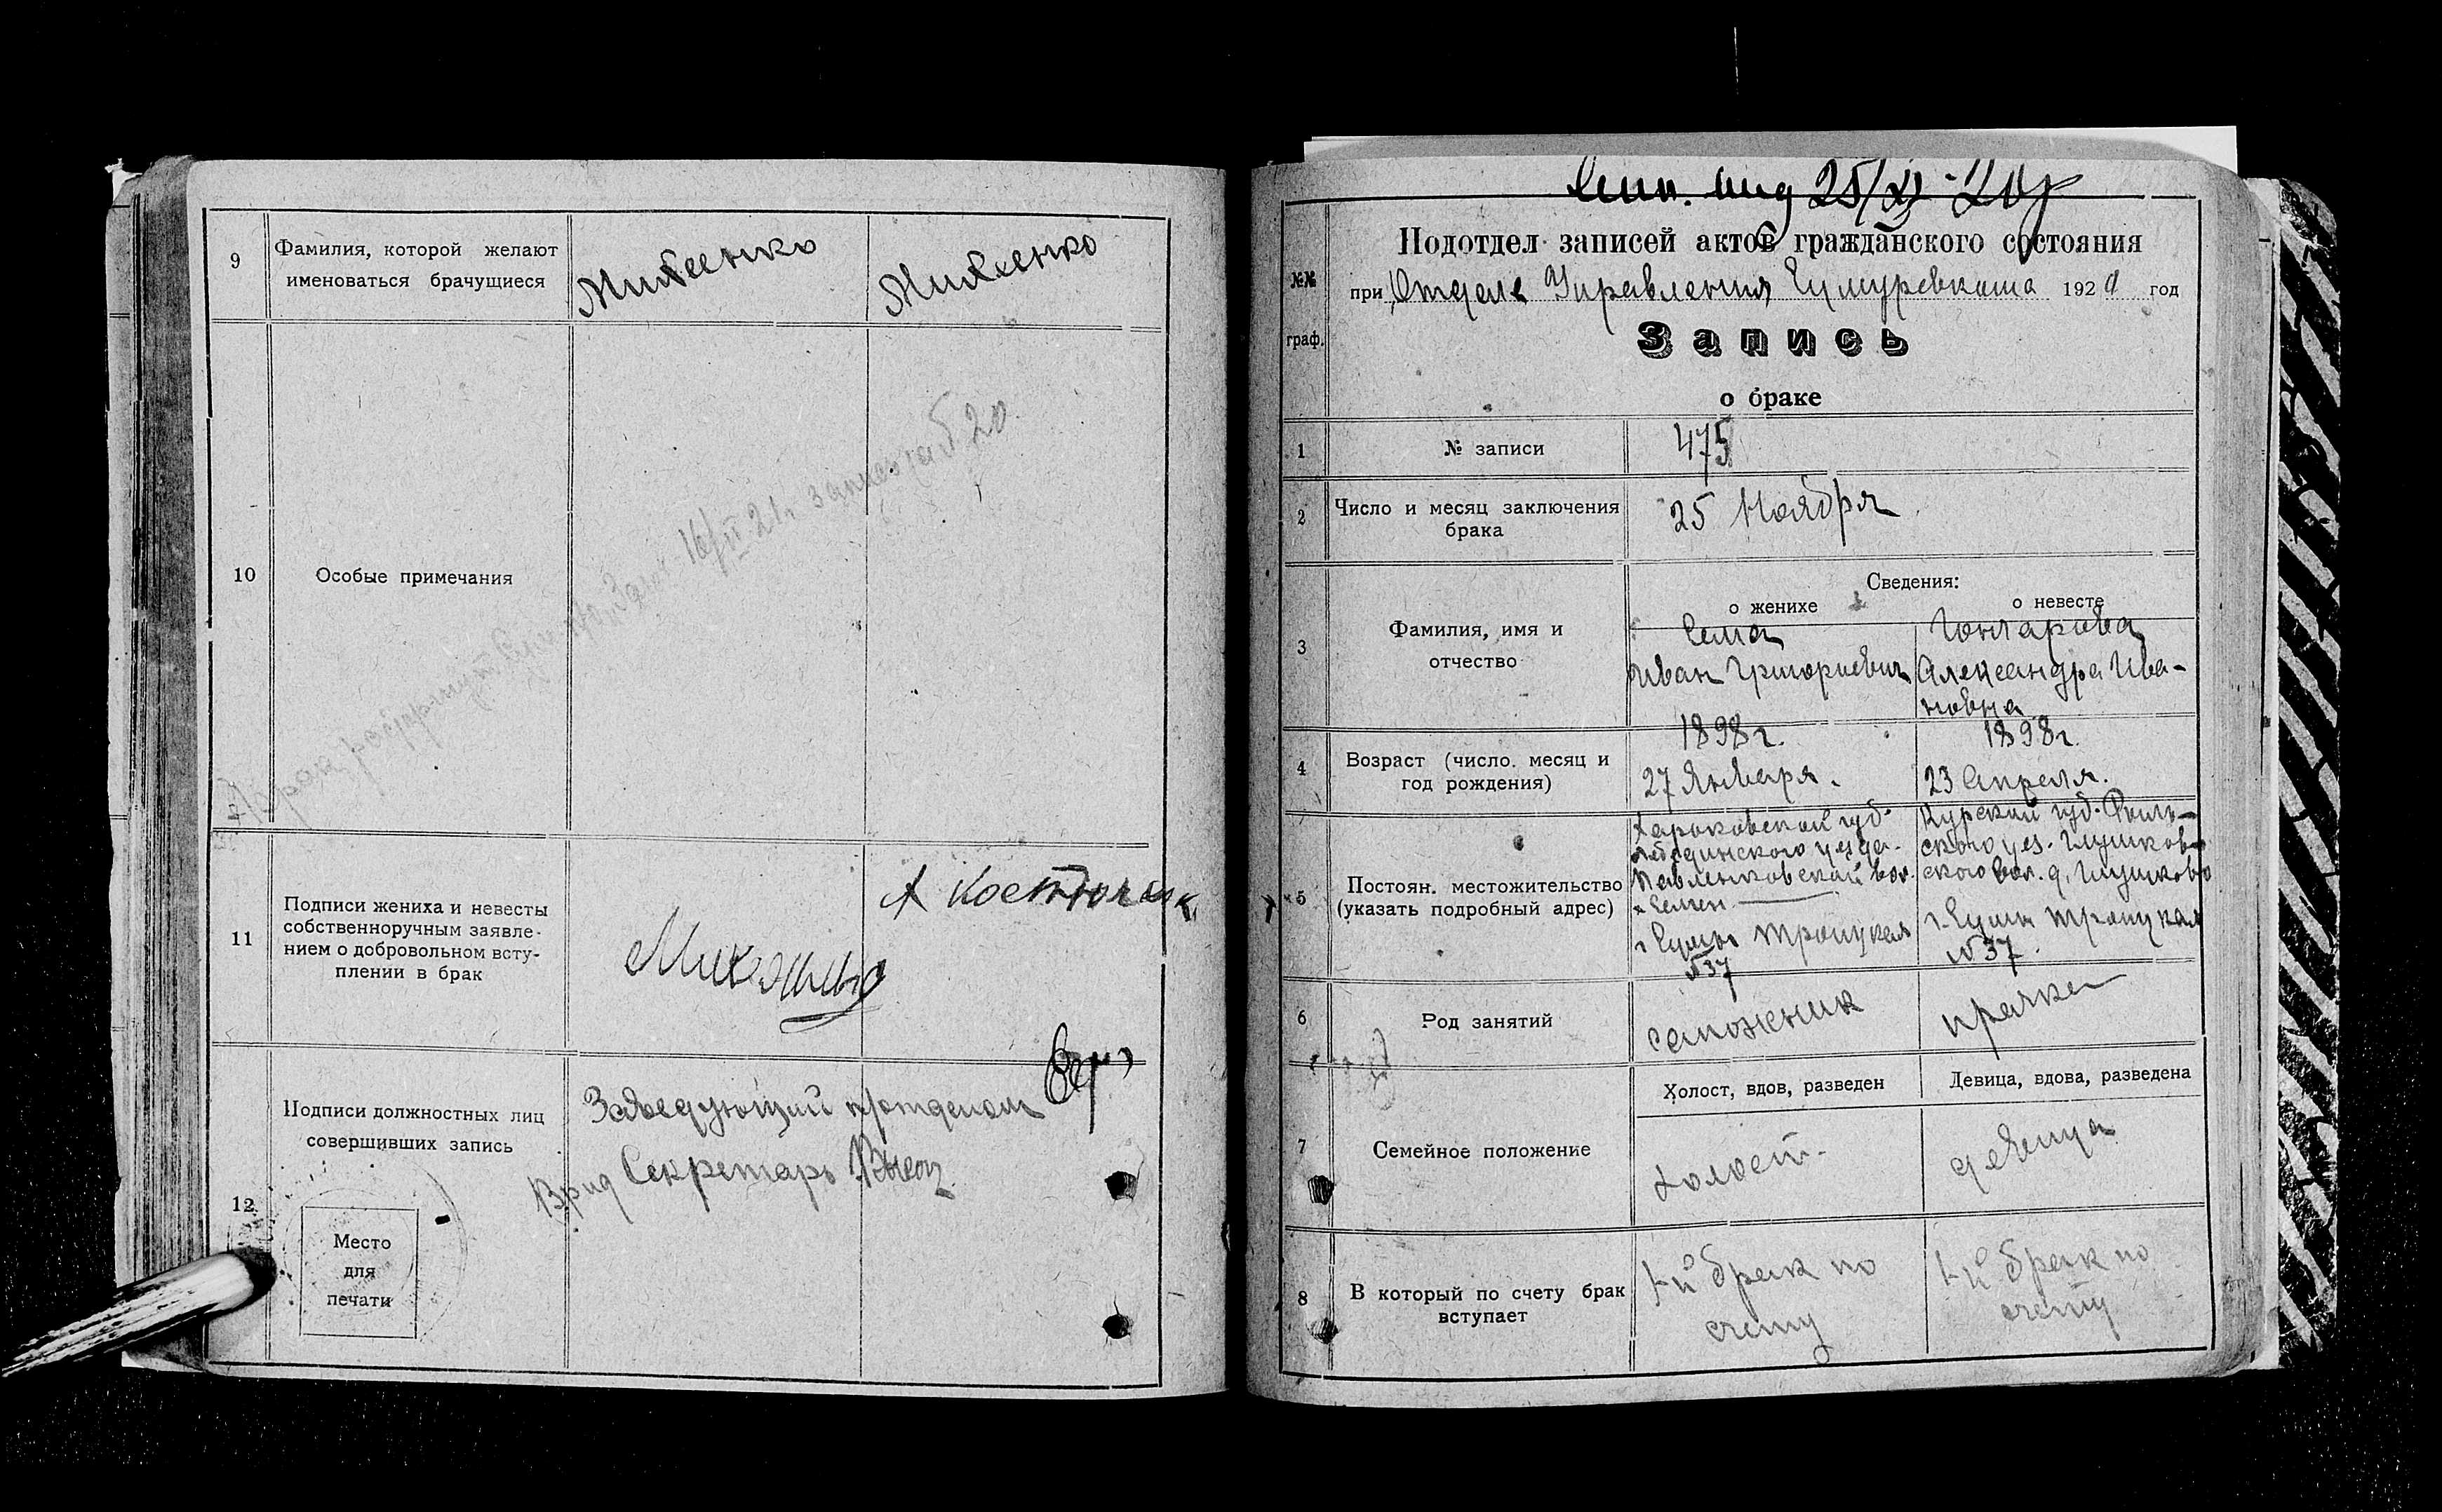 9
Фамилия, которой желают
именоваться брачущиеся
10
Особые примечания
16/II 21г.
11
Подписи жениха и невесты
собственноручным заявле-
нием о добровольном всту-
плении в брак
12
Подписи должностных лиц
совершивших запись
Заведующий
Врид Секретарь
Место
для
печати
25/XI-20г
Подотдел записей актов гражданского состояния
№№
граф.
при Отделе Управления 1920 год
Запись
о браке
1
№ записи
475
2
Число и месяц заключения
брака
25 Ноября
3
Фамилия, имя и
отчество
Сведения:
о женихе
о невесте
Сема
Иван Григориевич
Гончарова
Александра Ива-
новна
4
Возраст (число, месяц и
год рождения)
1898г.
27 Января.
1898г.
23 Апреля.
5
Постоян. местожительство
(указать подробный адрес)
Харьковской губ.
Лебединского уезда.
Павленковской вол.
г. Сумы Троицкая
№37
Курской губ.
ского уез. Глушков-
ского вол. д. Глушково
г. Сумы Троицкая
№ 37.
6
Род занятий
сапожник
прачка
7
Семейное положение
Холост, вдов, разведен
Девица, вдова, разведена
холост.
девица
8
В который по счету брак
вступает
1-й брак по
счету
1-й брак по
счету